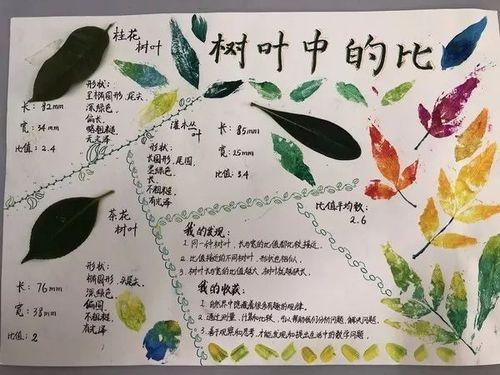 树叶中的比
桂花
树叶
形状：
呈椭圆形，尾尖
深绿色
偏长
略粗糙
无光泽
长：82mm
宽：34mm
比值：2.4
灌木丛
叶
形状：
长圆形，尾圆
墨绿色
长
不粗糙
有光泽
长：85mm
宽：25mm
比值：3.4
茶花
树叶
形状：
椭圆形，头尾尖
深绿色
偏圆
不粗糙
有光泽
长：76mm
宽：38mm
比值：2
比值平均数：
2.6
我的发现：
1.同一种树叶，长与宽的比值都比较接近。
2.比值接近的不同树叶，形状也相似。
3.树叶长与宽的比值越大，树叶就越狭长。
我的收获：
1.自然界中隐藏着很多有趣的规律。
2.通过测量、计算和比较，可以帮助我们分析问题、解决问题。
3.善于观察和思考，才能发现和提出生活中的数学问题。